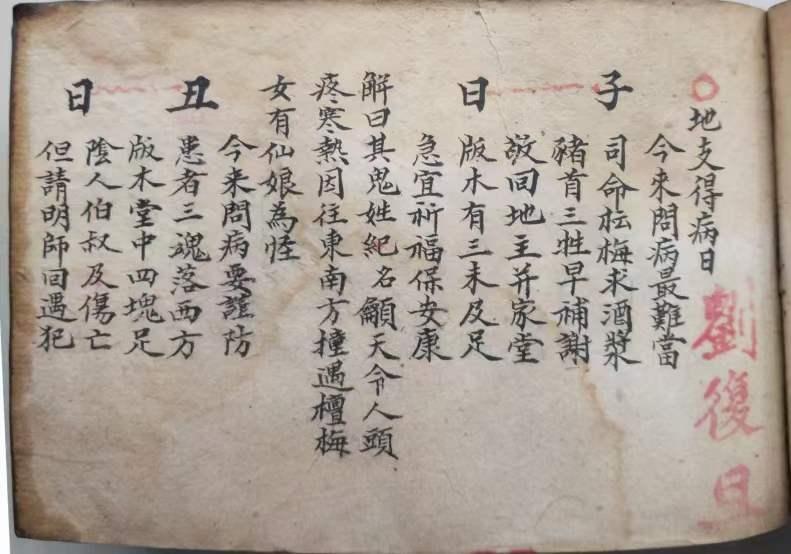 劉復旦
地支得病日
今来問病最難當
子
司命枟梅求酒漿
豬首三牲早補謝
敬回地主并家堂
日
版木有三未及足
急宜祈福保安康
解曰其鬼姓紀名籲天令人頭
疼寒熱因往東南方撞遇檀梅
女有仙娘為怪
今来問病要謹防
丑
患者三魂落西方
版木堂中四塊足
陰人伯叔及傷亡
日
但請明師回遇犯